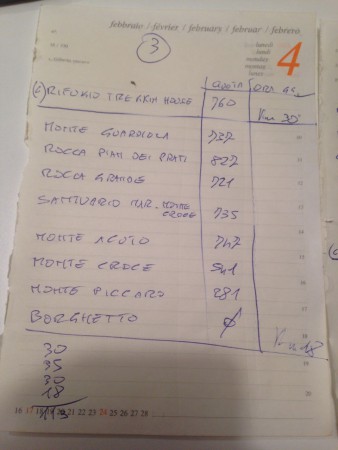 febbraio / février / february / februar / febrero
3
4
QUOTA
(6) RIFUGIO TRE 760
Km 30
MONTE GUARDIOLA 737
ROCCA PIAN DEI PRATI 827
ROCCA GRANDE 721
SANTUARIO MONTE CROCE 735
MONTE ACUTO 747
MONTE CROCE 541
MONTE PICCARO 281
BORGHETTO Ø
Km 18
30
35
30
18
113
16 17 18 19 20 21 22 23 24 25 26 27 28